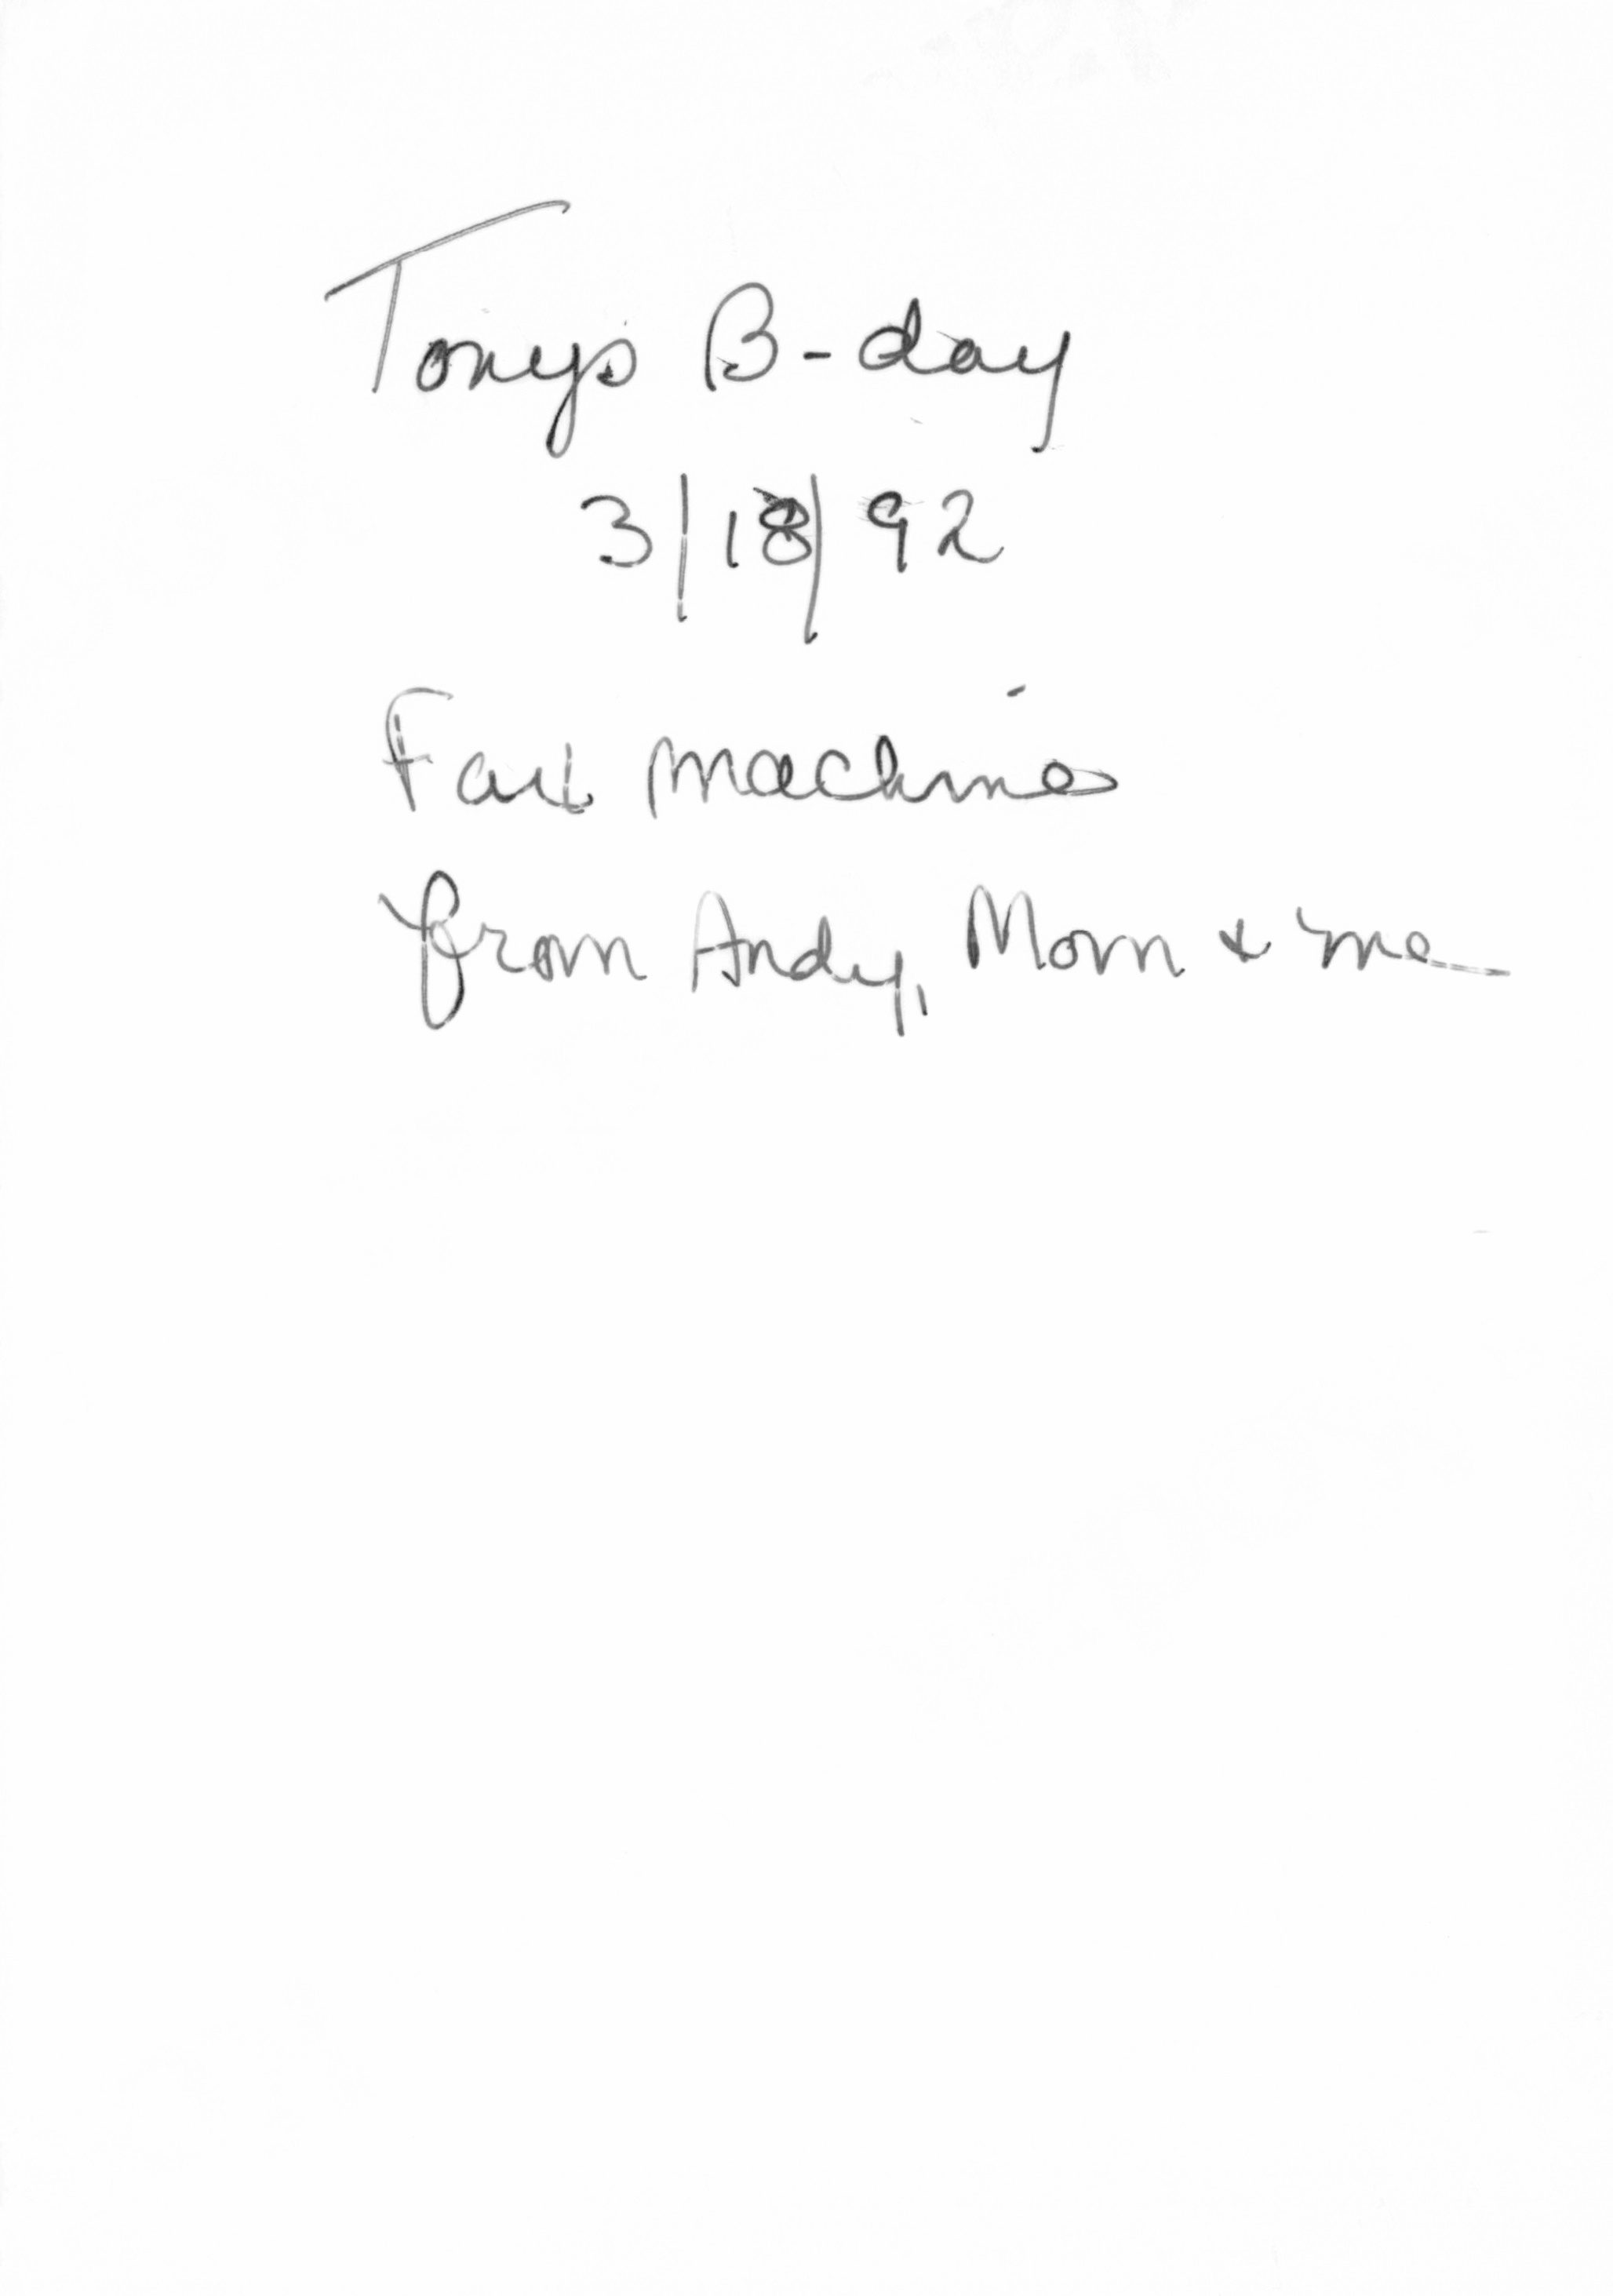 Tonys B-day
3/18/92
Fax machine
from Andy, Mom & me